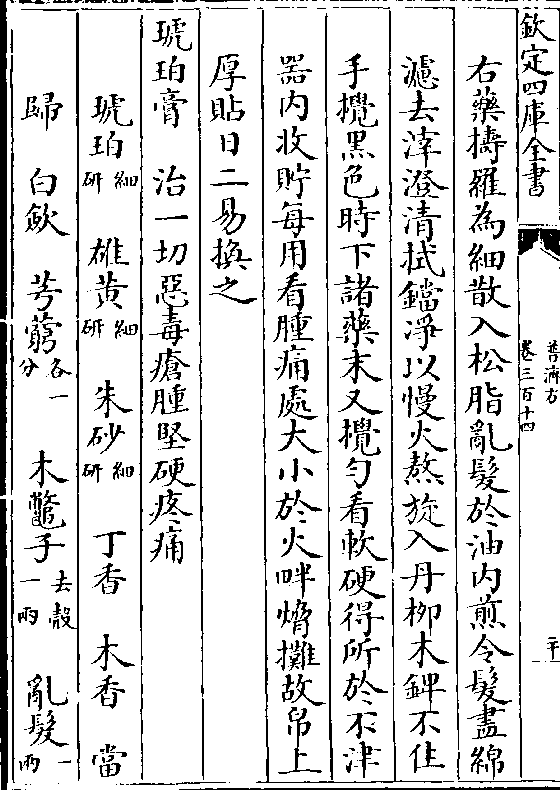 欽定四庫全書
普濟方
卷三百十四
二十
右藥擣羅為細散入松脂亂髮於油内煎令髮盡綿
濾去滓澄清拭鐺淨以慢火熬旋入丹栁木鎞不住
手攪黑色時下諸藥末又攪勻看軟硬得所於不津
器内收貯每用看腫痛處大小於火畔煿攤故帛上
厚貼日二易換之
琥珀膏 治一切惡毒瘡腫堅硬疼痛
琥珀細研 雄黄細研 朱砂細研 丁香 木香 當
歸 白蘞 芎藭各一分 木鼈子去殼一兩 亂髮一兩